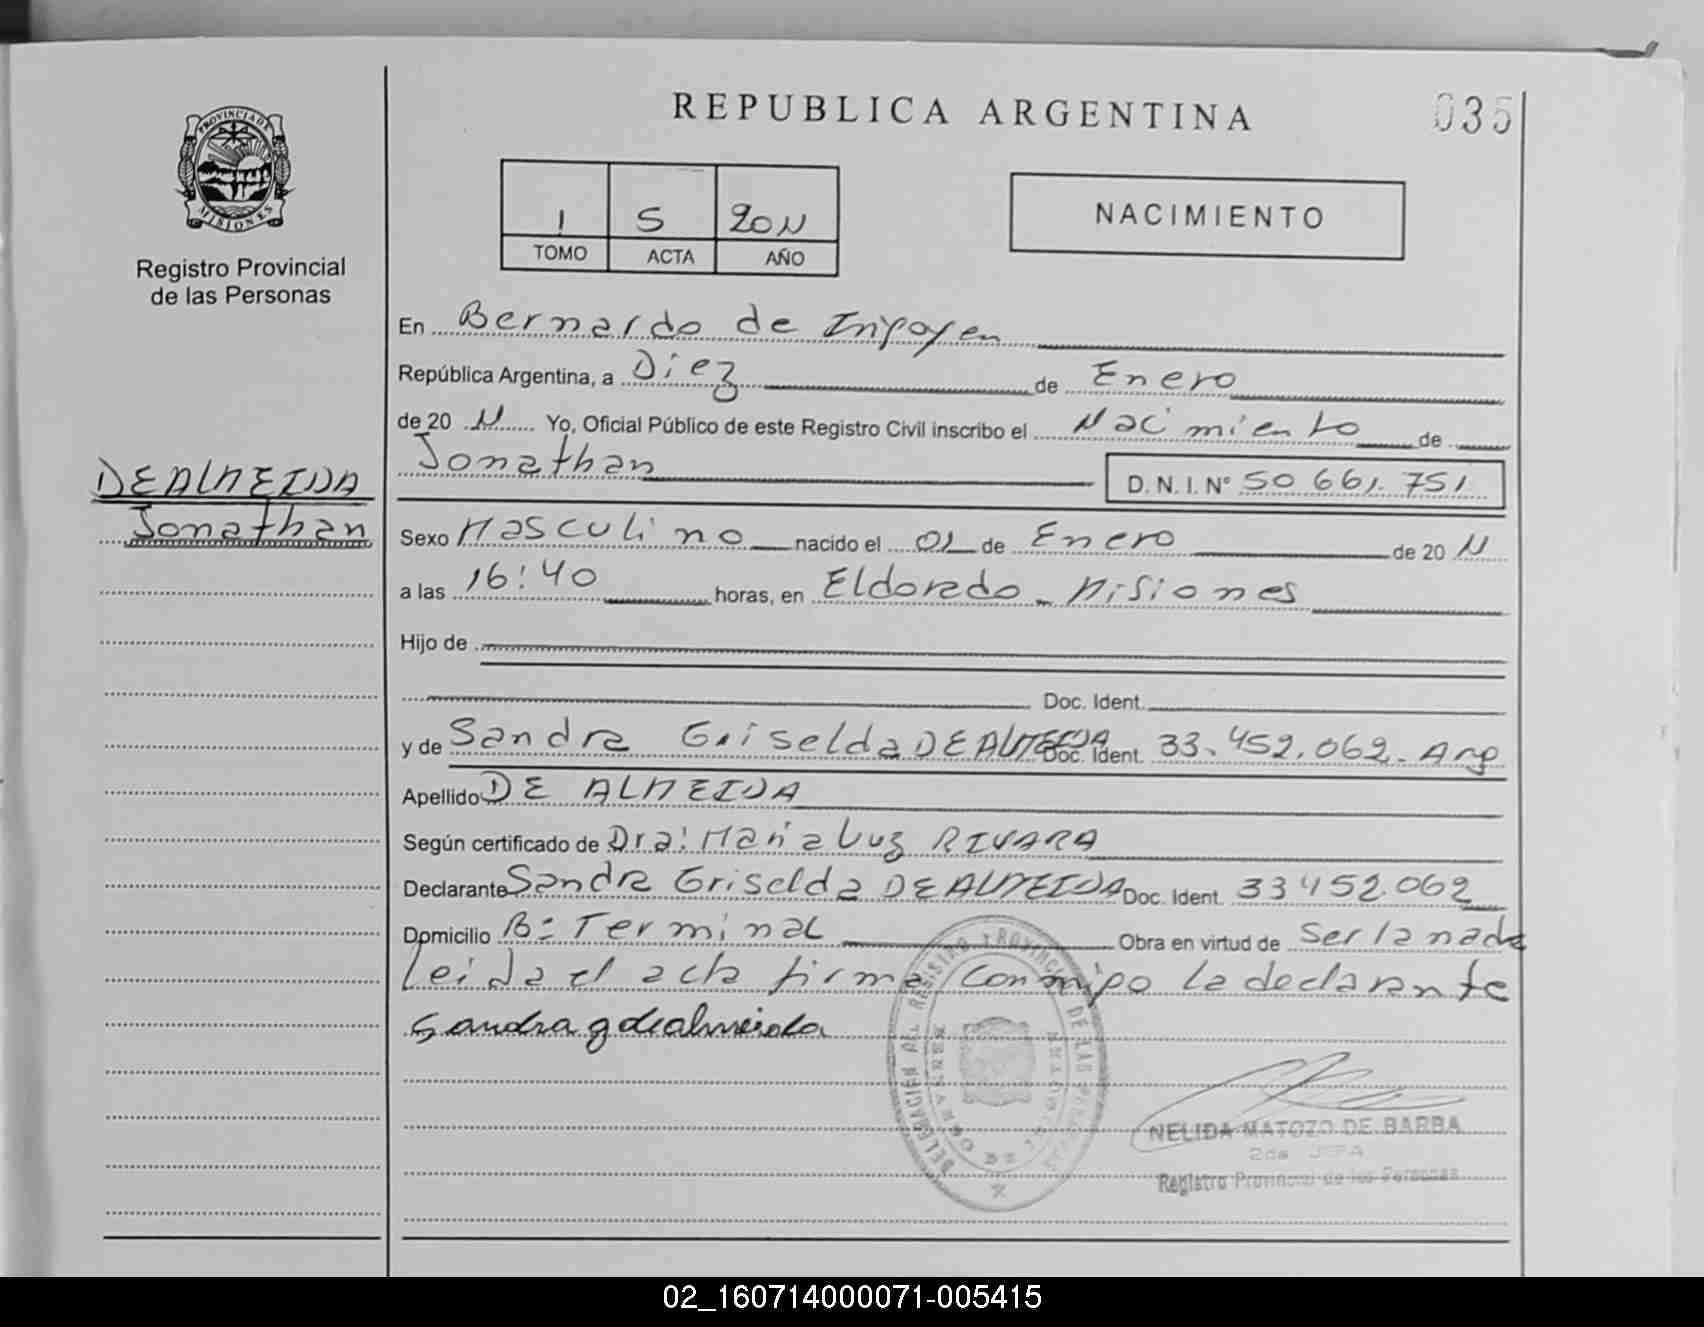 REPUBLICA ARGENTINA
035
PROVINCIA DE MISIONES
Registro Provincial
de las Personas
1 5 2011
TOMO ACTA AÑO
NACIMIENTO
En Bernardo de Irigoyen
República Argentina, a Diez de Enero
de 20 11 Yo, Oficial Público de este Registro Civil inscribo el Nacimiento de
Jonathan D. N. I. N° 50 661.751
DE ALMEIDA
Jonathan
Sexo Masculino nacido el 01 de Enero de 20 11
a las 16:40 horas, en Eldorado - Misiones
Hijo de
Doc. Ident.
y de Sandra Griselda DE ALMEIDA Doc. Ident. 33.452.062. Arg
Apellido DE ALMEIDA
Según certificado de Dra: Maria Luz RIVARA
Declarante Sandra Griselda DE ALMEIDA Doc. Ident. 33 452.062
Domicilio B= Terminal Obra en virtud de Ser la madre
Leida el acta firma conmigo la declarante
Sandra g de almeida
DELEGACION DEL REGISTRO PROVINCIAL DE LAS PERSONAS
NELIDA MATOZO DE BARBA
2da JEFA
Registro Provincial de las Personas
02_160714000071-005415